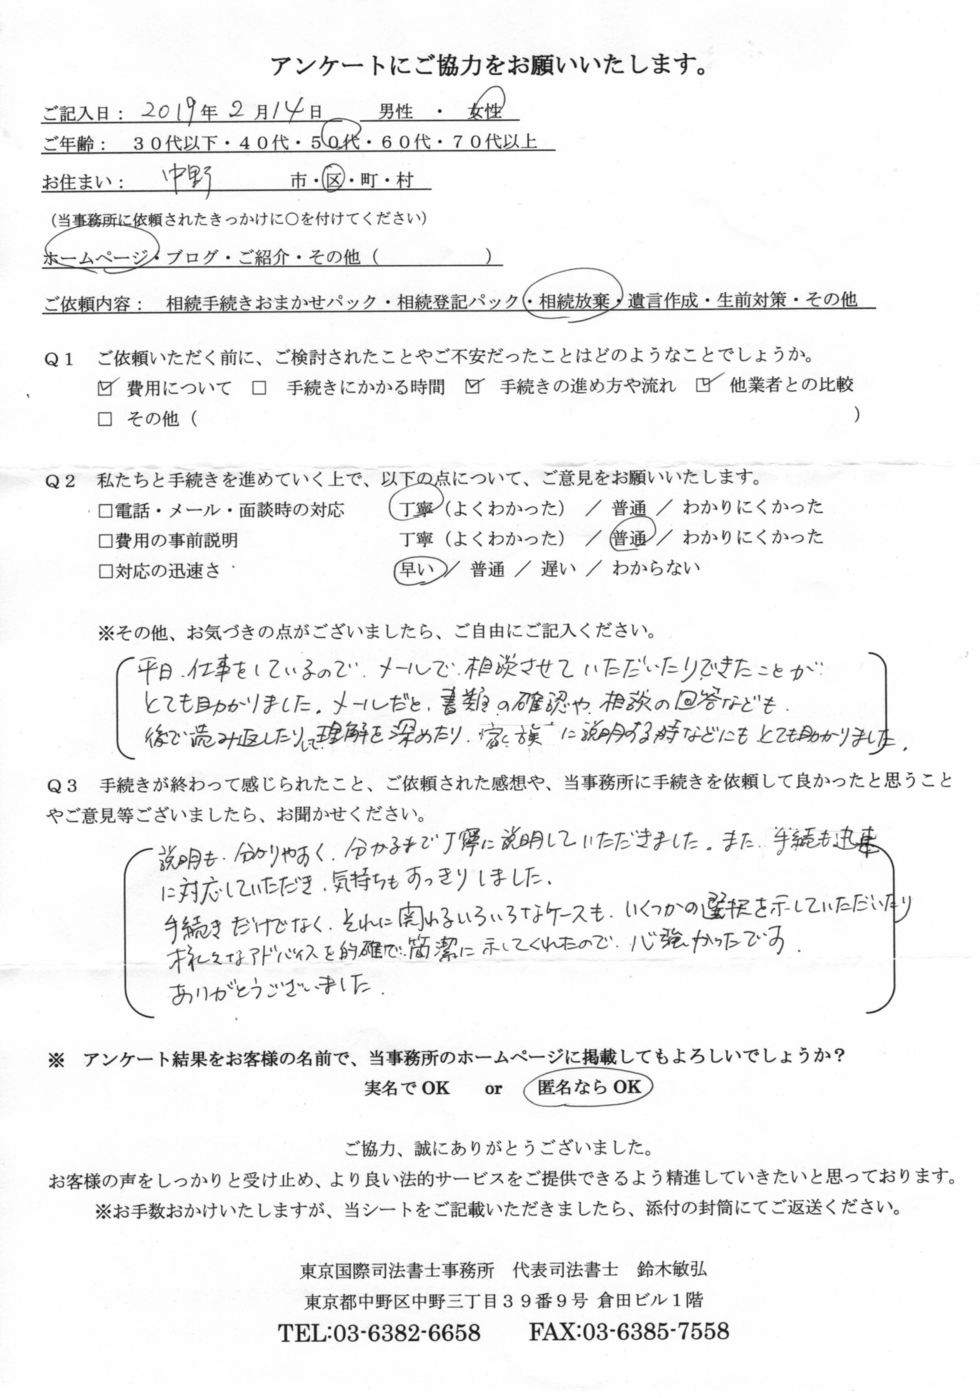 アンケートにご協力をお願いいたします。
ご記入日： 2019年 2月14日　　男性　・　女性
ご年齢：　３０代以下・４０代・５０代・６０代・７０代以上
お住まい：　中野　　　　市・区・町・村
（当事務所に依頼されたきっかけに○を付けてください）
ホームページ・ブログ・ご紹介・その他（　　　　　　）
ご依頼内容：　相続手続きおまかせパック・相続登記パック・相続放棄・遺言作成・生前対策・その他
Ｑ１　ご依頼いただく前に、ご検討されたことやご不安だったことはどのようなことでしょうか。
☑ 費用について　□　手続きにかかる時間　☑　手続きの進め方や流れ　☑　他業者との比較
□　その他（　　　　　　　　　　　　　　　　　　　　）
Ｑ２　私たちと手続きを進めていく上で、以下の点について、ご意見をお願いいたします。
□電話・メール・面談時の対応　　　丁寧（よくわかった）　／　普通　／　わかりにくかった
□費用の事前説明　　　丁寧（よくわかった）　／　普通　／　わかりにくかった
□対応の迅速さ　　　早い　／　普通　／　遅い　／　わからない
※その他、お気づきの点がございましたら、ご自由にご記入ください。
平日、仕事をしているので、メールで、相談させていただいたりできたことが
とても助かりました。メールだと、書類の確認や、相談の回答なども、
後で読み返したりして理解を深めたり、家族に説明する時などにもとても助かりました。
Ｑ３　手続きが終わって感じられたこと、ご依頼された感想や、当事務所に手続きを依頼して良かったと思うこと
やご意見等ございましたら、お聞かせください。
説明も、分かりやすく、分かるまで丁寧に説明していただきました。また、手続も迅速
に対応していただき、気持ちもすっきりしました。
手続きだけでなく、それに関わるいろいろなケースも、いくつかの選択を示していただいたり
様々なアドバイスを的確で、簡潔に示してくれたので、心強かったです。
ありがとうございました。
※　アンケート結果をお客様の名前で、当事務所のホームページに掲載してもよろしいでしょうか？
実名でOK　　or　　匿名ならOK
ご協力、誠にありがとうございました。
お客様の声をしっかりと受け止め、より良い法的サービスをご提供できるよう精進していきたいと思っております。
※お手数おかけいたしますが、当シートをご記載いただきましたら、添付の封筒にてご返送ください。
東京国際司法書士事務所　代表司法書士　鈴木敏弘
東京都中野区中野三丁目３９番９号 倉田ビル１階
TEL:03-6382-6658　　FAX:03-6385-7558